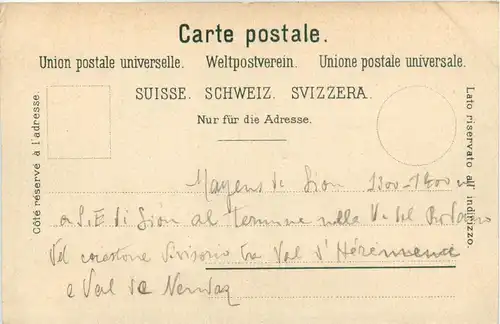 Carte postale.
Union postale universelle. Weltpostverein. Unione postale universale.
SUISSE. SCHWEIZ. SVIZZERA.
Nur für die Adresse.
Côté réservé à l'adresse.
Lato riservato all' indirizzo.
Mayens di Sion 1300-1400 m
a S.E di Sion al termine nella V. del Rodano
del costone divisorio tra Val d'Hérémence
e Val de Nendaz